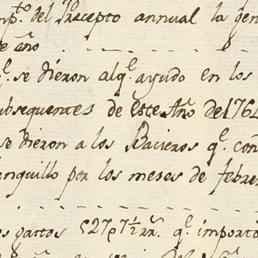 imp.º del Precepto annual la gen
e año
q.º se dieron al q.º ayudo en los
ubsequentes de este Año de 176
se dieron a los Bacieros q.º con
anquillo por los meses de febre
os gastos 527p 7½ rr.s q.º importo